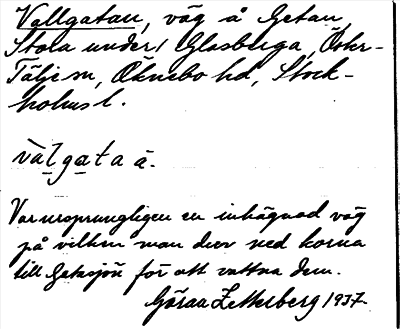 Vallgatan, väg å Getan,
Stola under Glasberga, Öster-
Tälje sn, Öknebo hd, Stock-
holms l.
va̱lga̱ta ä.
Var ursprungligen en inhägnad väg
på vilken man drev ned korna
till Getsjön för att vattna dem.
Göran Zetterberg 1937.